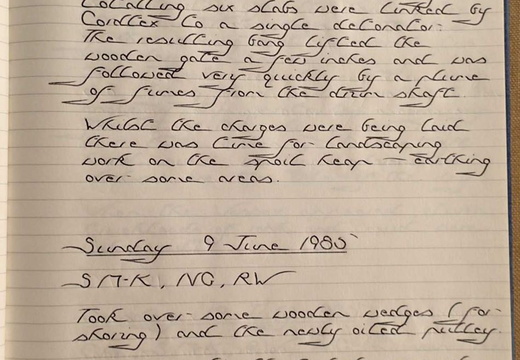 totalling six slabs were linked by
Cordtex to a single detonator.
The resulting bang lifted the
wooden gate a few inches and was
followed very quickly by a plume
of fumes from the drum shaft.
Whilst the charges were being laid
there was time for landscaping
work on the spoil heap - earthing
over some areas.
Sunday 9 June 1985
SM-K, NG, RW
Took over some wooden wedges (for
shoring) and the newly oiled pulley.